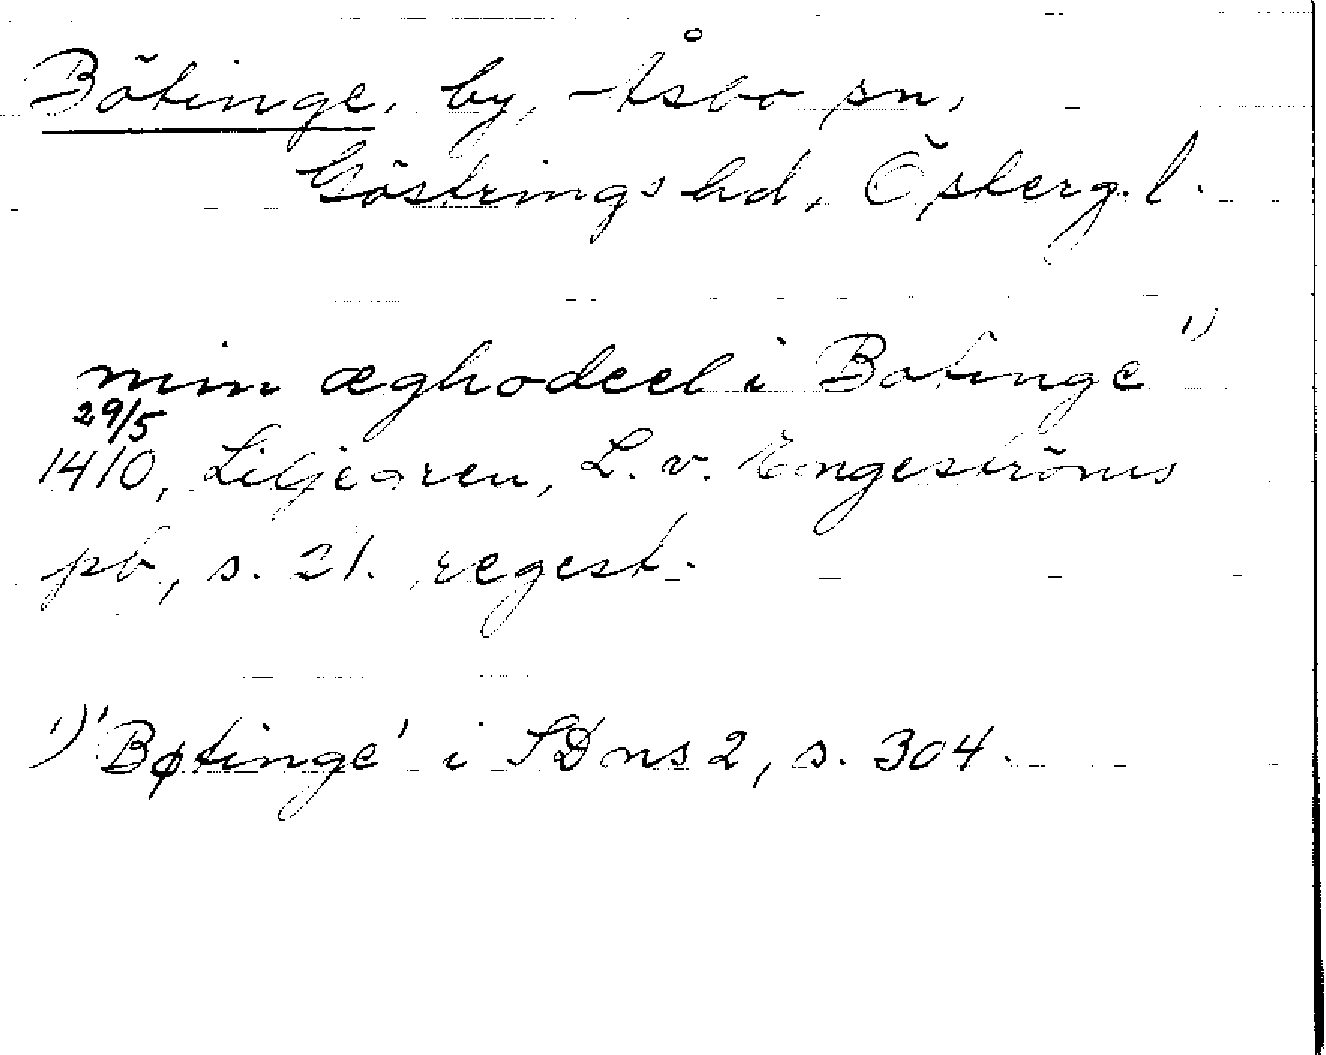 Bötinge, by, Åsbo sn,
Göstrings hd, Österg. l.
min æghodeel i Botinge 1)
29/5
1410, Liljegren, L. v. Engeströms
pb, s. 21. regest.
1) 'Bøtinge' i SD ns 2, s. 304.